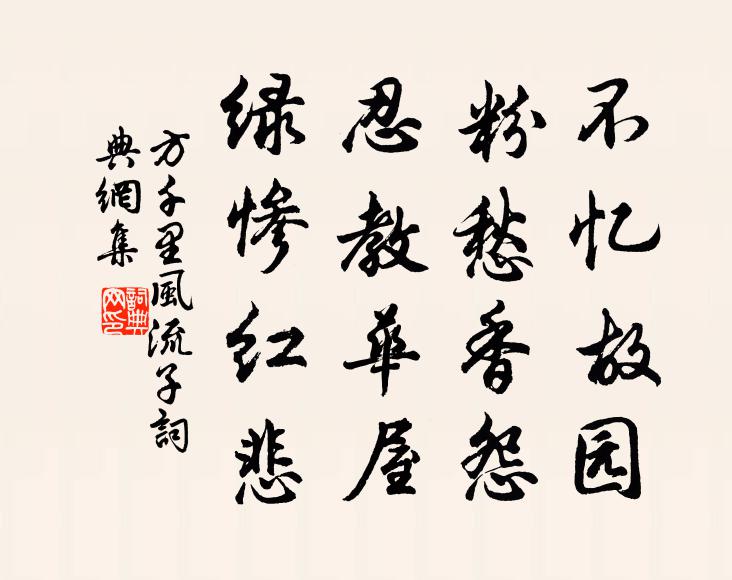 不忆故园
粉愁香怨
忍教华屋
绿惨红悲
方千里風流子詞
典網集
詞典网印